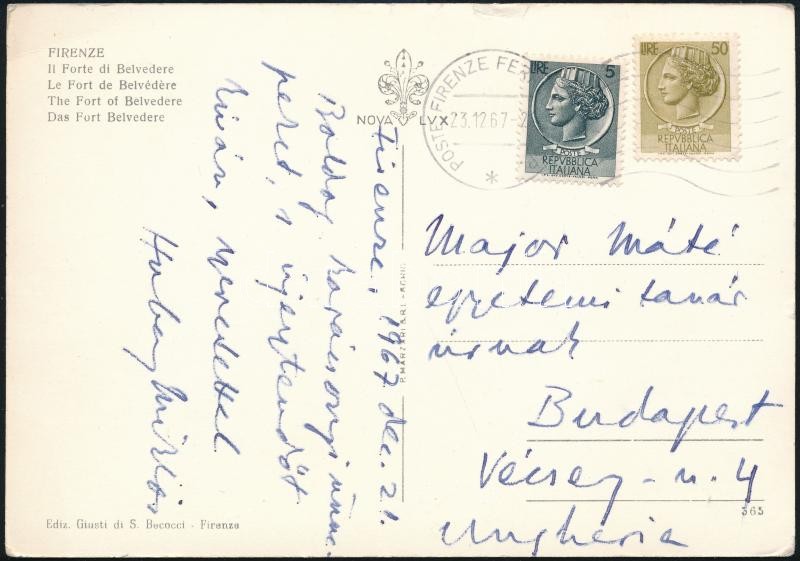 FIRENZE
Il Forte di Belvedere
Le Fort de Belvédère
The Fort of Belvedere
Das Fort Belvedere
NOVA LVX
POSTE FIRENZE FER
23.12.67-2
LIRE 5
POSTE
REPVBBLICA
ITALIANA
LIRE 50
POSTE
REPVBBLICA
ITALIANA
Firenze, 1967 dec. 21.
Boldog karácsonyi ünne-
peket, s újesztendőt
kíván, szeretettel
Hubay Miklós
P. MARZARI S.R.L. - SCHIO
Major Máté
egyetemi tanár
úrnak
Budapest
Vécsey-u. 4
Ungheria
Ediz. Giusti di S. Becocci - Firenze
365